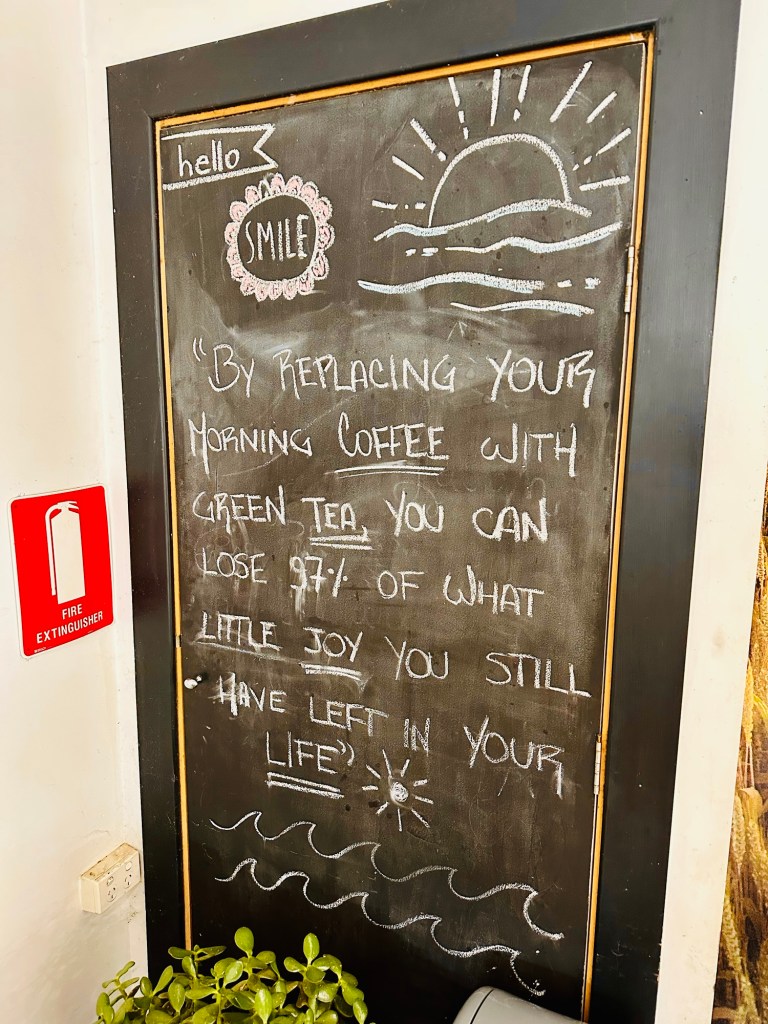 hello
SMILE
"BY REPLACING YOUR
MORNING COFFEE WITH
GREEN TEA, YOU CAN
LOSE 97% OF WHAT
LITTLE JOY YOU STILL
HAVE LEFT IN YOUR
LIFE"
FIRE
EXTINGUISHER